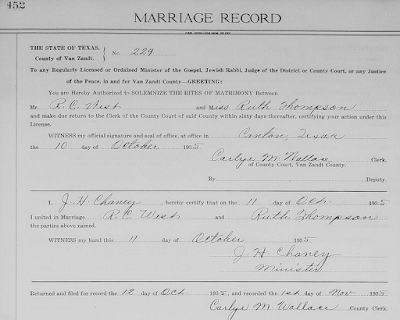 452
MARRIAGE RECORD
THE STATE OF TEXAS,
County of Van Zandt.
No. 229
To any Regularly Licensed or Ordained Minister of the Gospel, Jewish Rabbi, Judge of the District or County Court, or any Justice
of the Peace, in and for Van Zandt County—GREETING:
You are Hereby Authorized to SOLEMNIZE THE RITES OF MATRIMONY Between
Mr. R.C. West and Miss Ruth Thompson
and make due return to the Clerk of the County Court of said County within sixty days thereafter, certifying your action under this
License.
WITNESS my official signature and seal of office, at office in Canton, Texas
the 10 day of October 1935
Carlye M. Wallace Clerk
of County Court, Van Zandt County.
By Deputy.
I, J. H. Chaney, hereby certify that on the 11 day of Oct. 1935
I united in Marriage R.C. West and Ruth Thompson
the parties above named.
WITNESS my hand this 11 day of October 1935
J. H. Chaney
Minister
Returned and filed for record the 12 day of Oct. 1935, and recorded the 1st day of Nov 1935
Carlye M. Wallace County Clerk.